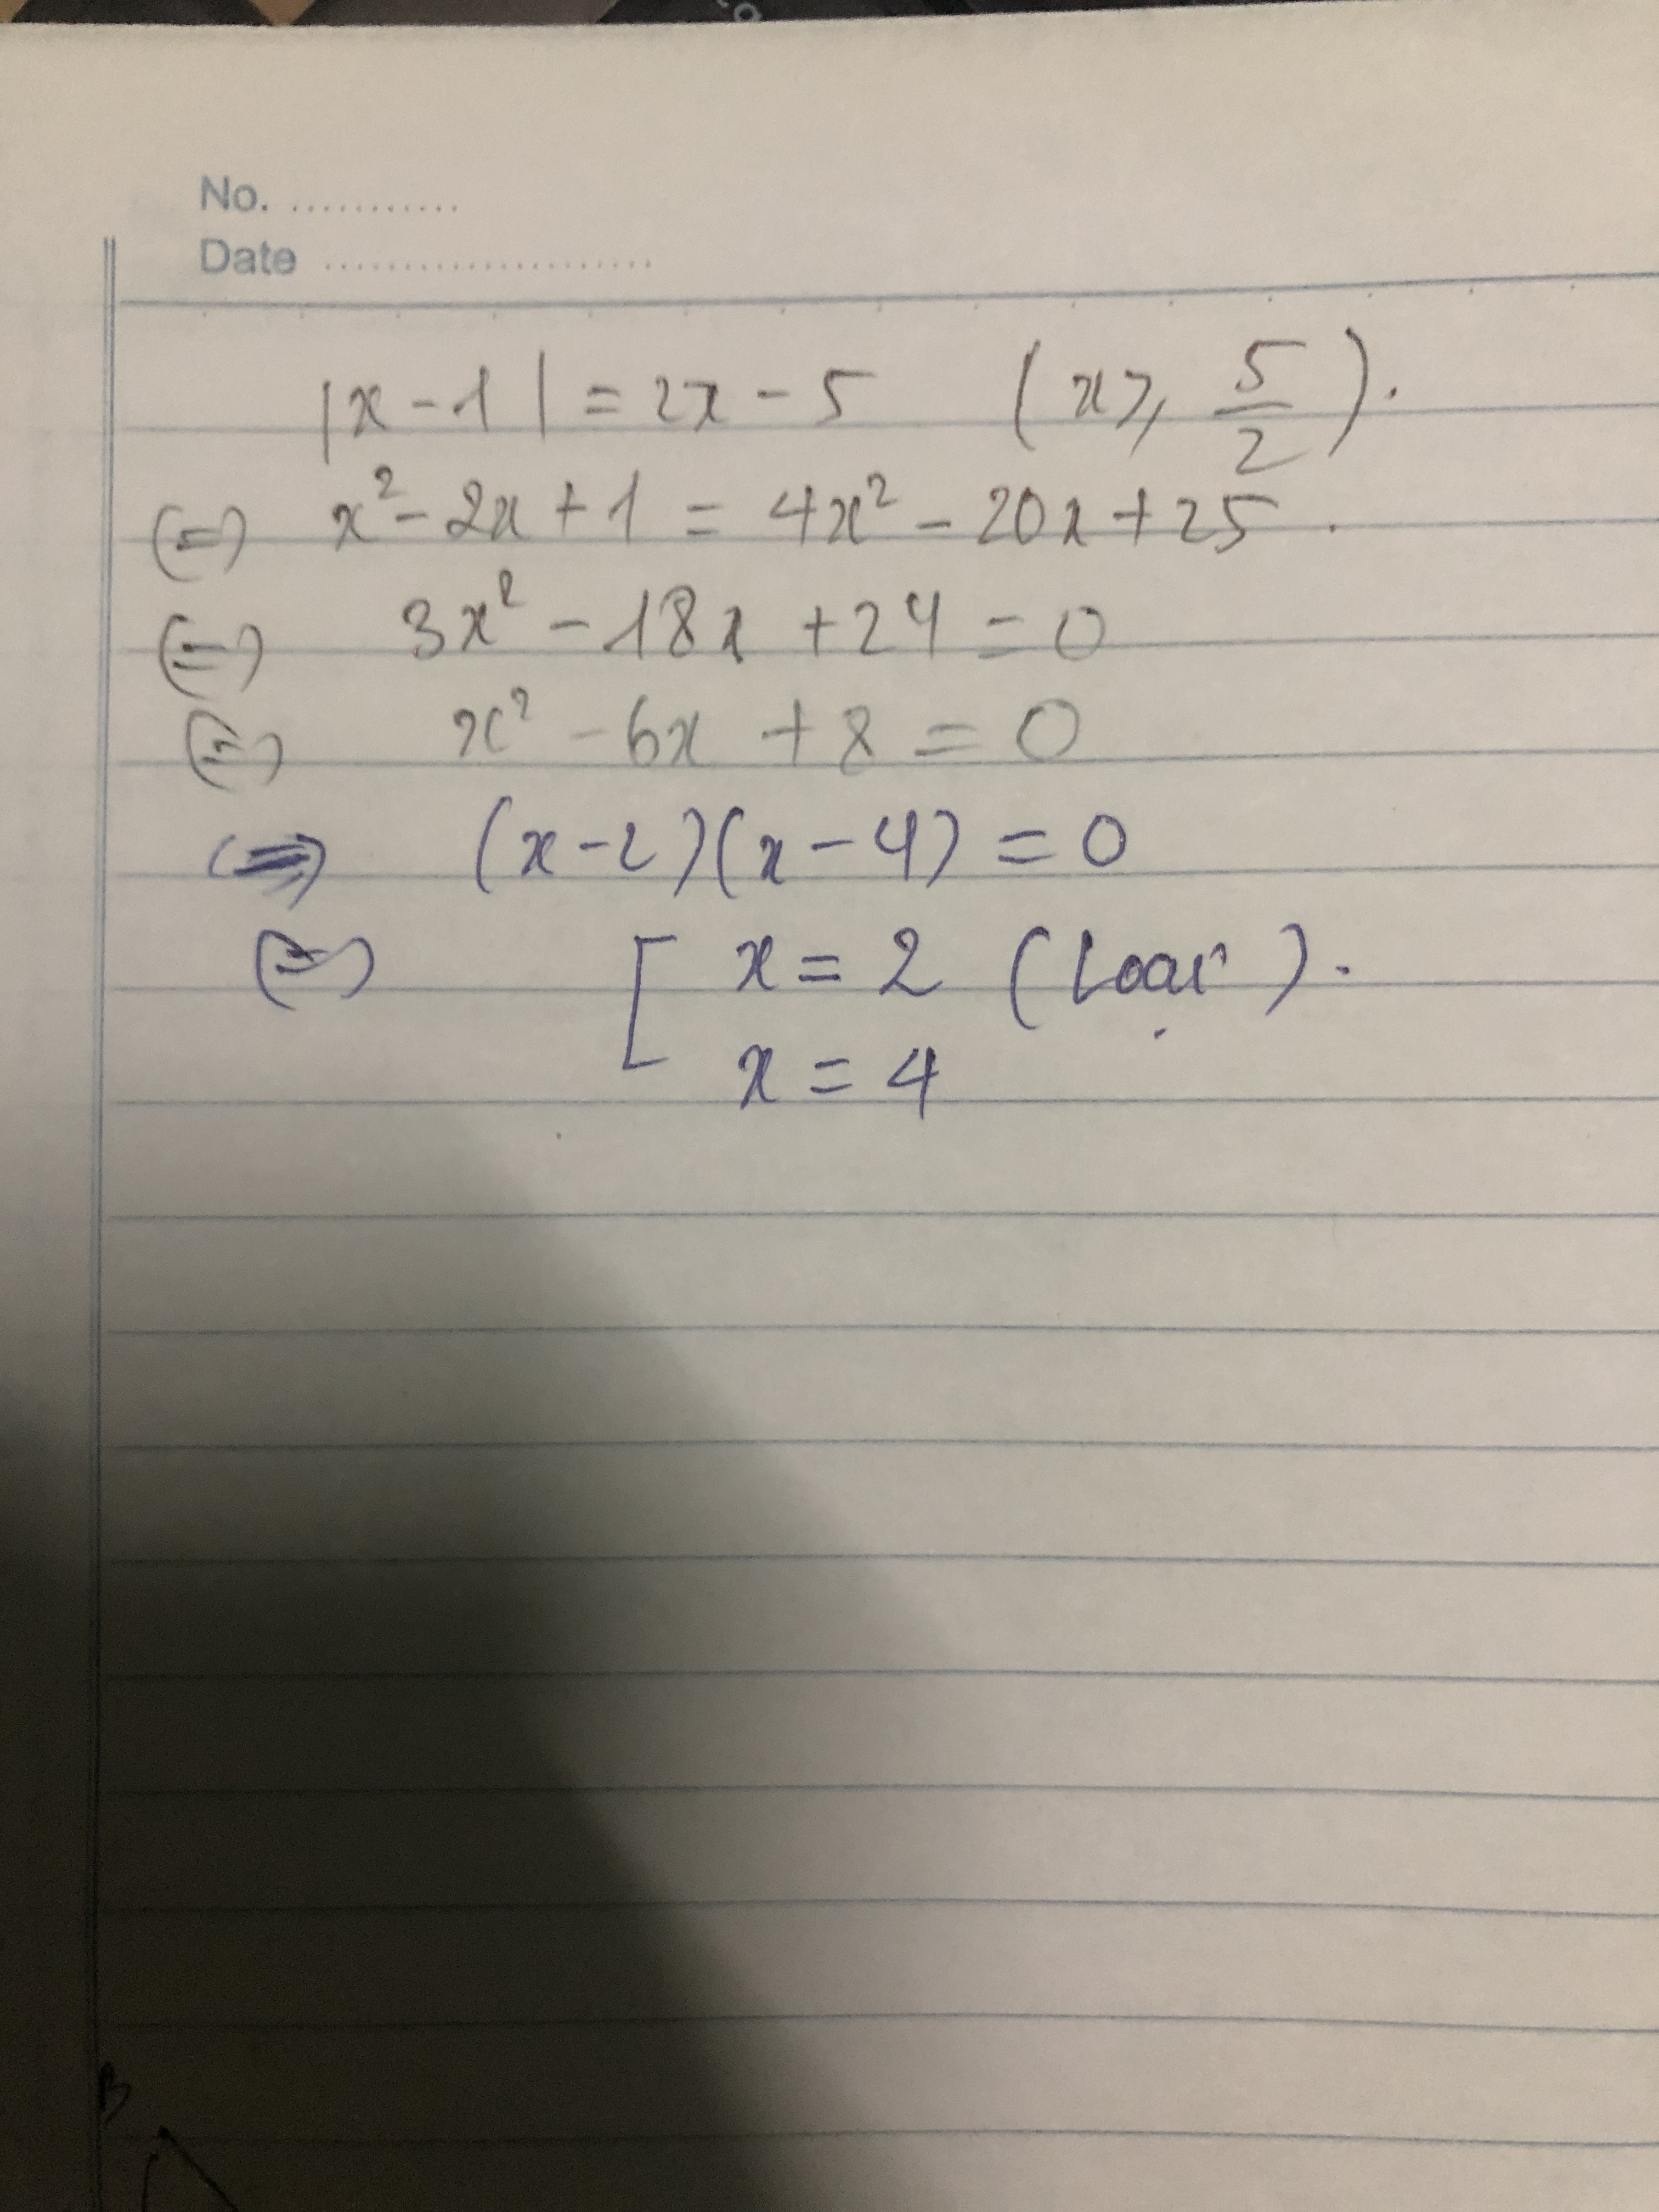 No. ...........
Date .....................
|x - 1| = 2x - 5 (x ≥ 5/2).
(=) x² - 2x + 1 = 4x² - 20x + 25.
(=) 3x² - 18x + 24 = 0
(=) x² - 6x + 8 = 0
(=) (x - 2)(x - 4) = 0
(=) [ x = 2 (Loại).
x = 4
B